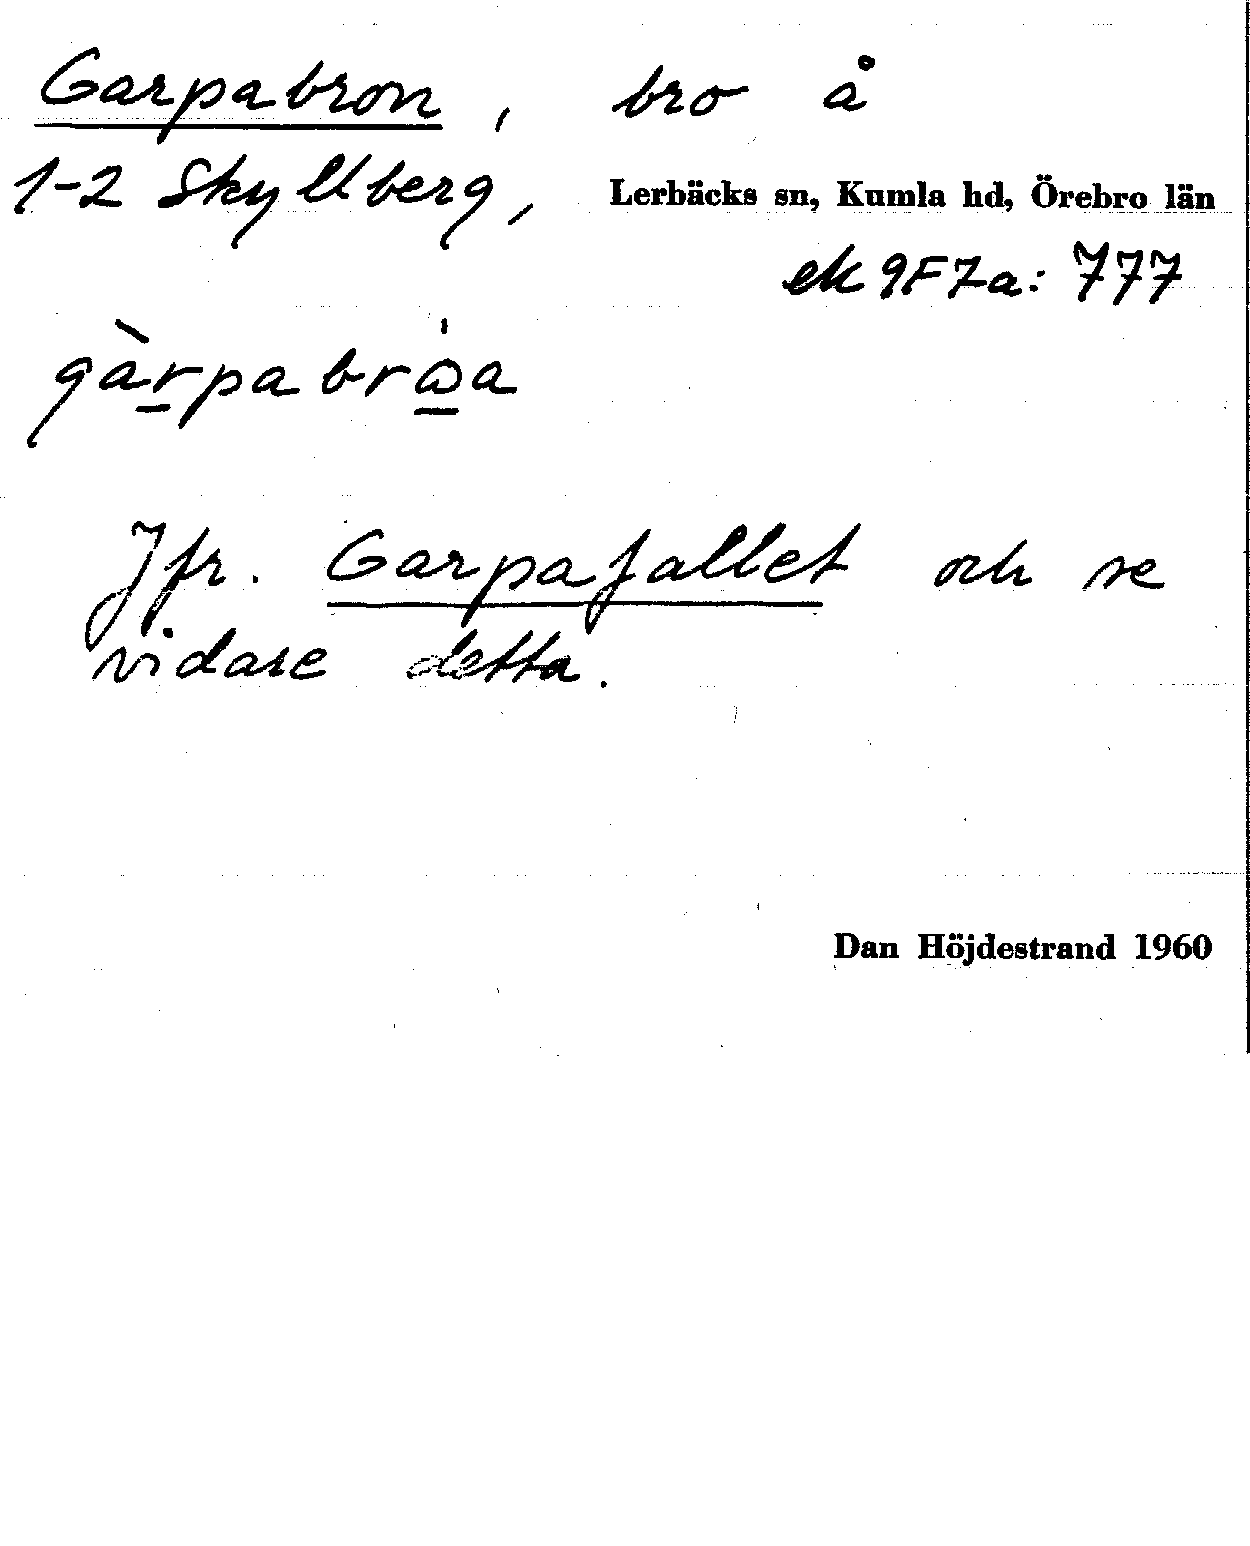 Garpabron, bro å
1-2 Skyllberg, Lerbäcks sn, Kumla hd, Örebro län
ek 9F7a: 777
gàrpabrώ̲a
Jfr. Garpafallet och se
vidare detta.
Dan Höjdestrand 1960